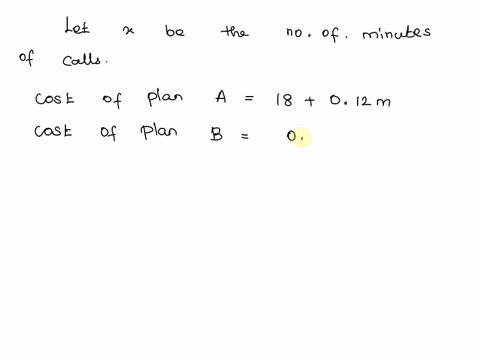 Let x be the no. of. minutes
of calls.
cost of plan A = 18 + 0.12m
cost of plan B = 0.